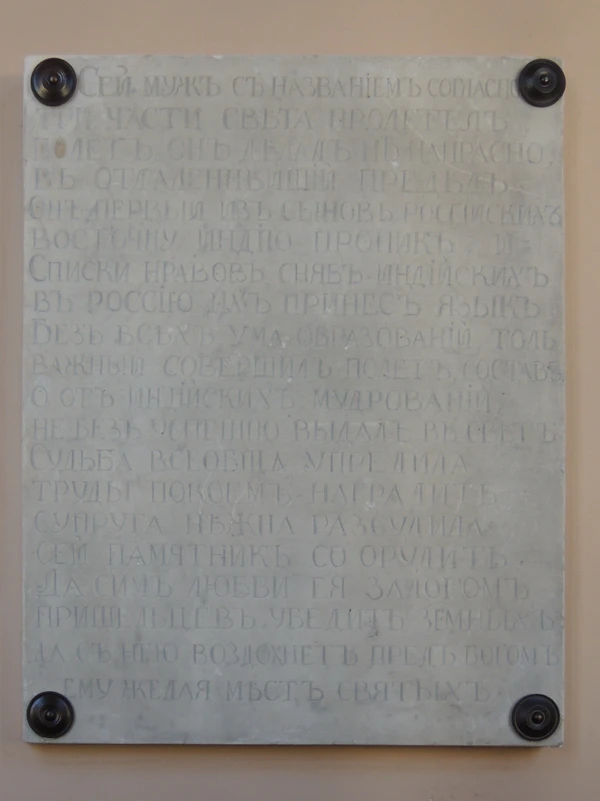 СЕЙ МУЖЪ СЪ НАЗВАНІЕМЪ СОГЛАСНО
ТРИ ЧАСТИ СВЕТА ПРОЛЕТЕЛЪ
ПОЛЕТЪ ОНЪ ДЕЛАЛЪ НЕ НАПРАСНО
ВЪ ОТДАЛЕННЕЙШІЙ ПРЕДЕЛЪ
ОНЪ ПЕРВЫЙ ИЗЪ СЫНОВЪ РОССІЙСКИХЪ
ВОСТОЧНУ ИНДІЮ ПРОНИКЪ И
СПИСКИ НРАВОВЪ СНЯВЪ ИНДІЙСКИХЪ
ВЪ РОССІЮ ИХЪ ПРИНЕСЪ ЯЗЫКЪ
БЕЗЪ ВСѢХЪ УМА ОБРАЗОВАНІЙ ТОЛЬ
ВАЖНЫЙ СОВЕРШИЛЪ ПОЛЕТЪ СОСТАВЪ
О ОТЪ ИНДІЙСКИХЪ МУДРОВАНІЙ
НЕ БЕЗЪ УСПЕШНО ВЫДАЛЪ ВЪ СВЕТЪ
СУДЬБА ВСЕОБЩА УПРЕДИЛА
ТРУДЫ ПОКОЕМЪ НАГРАДИТЬ
СУПРУГА НѢЖНА РАЗСУДИЛА
СЕЙ ПАМЯТНИКЪ СООРУДИТЬ.
ДА СИМЪ ЛЮБВИ ЕЯ ЗАЛОГОМЪ
ПРИШЕЛЬЦЕВЪ УБЕДИТЪ ЗЕМНЫХЪ
ДА СЪ НЕЮ ВОЗДОХНЕТЪ ПРЕДЪ БОГОМЪ
ЕМУ ЖЕЛАЯ МѢСТЪ СВЯТЫХЪ